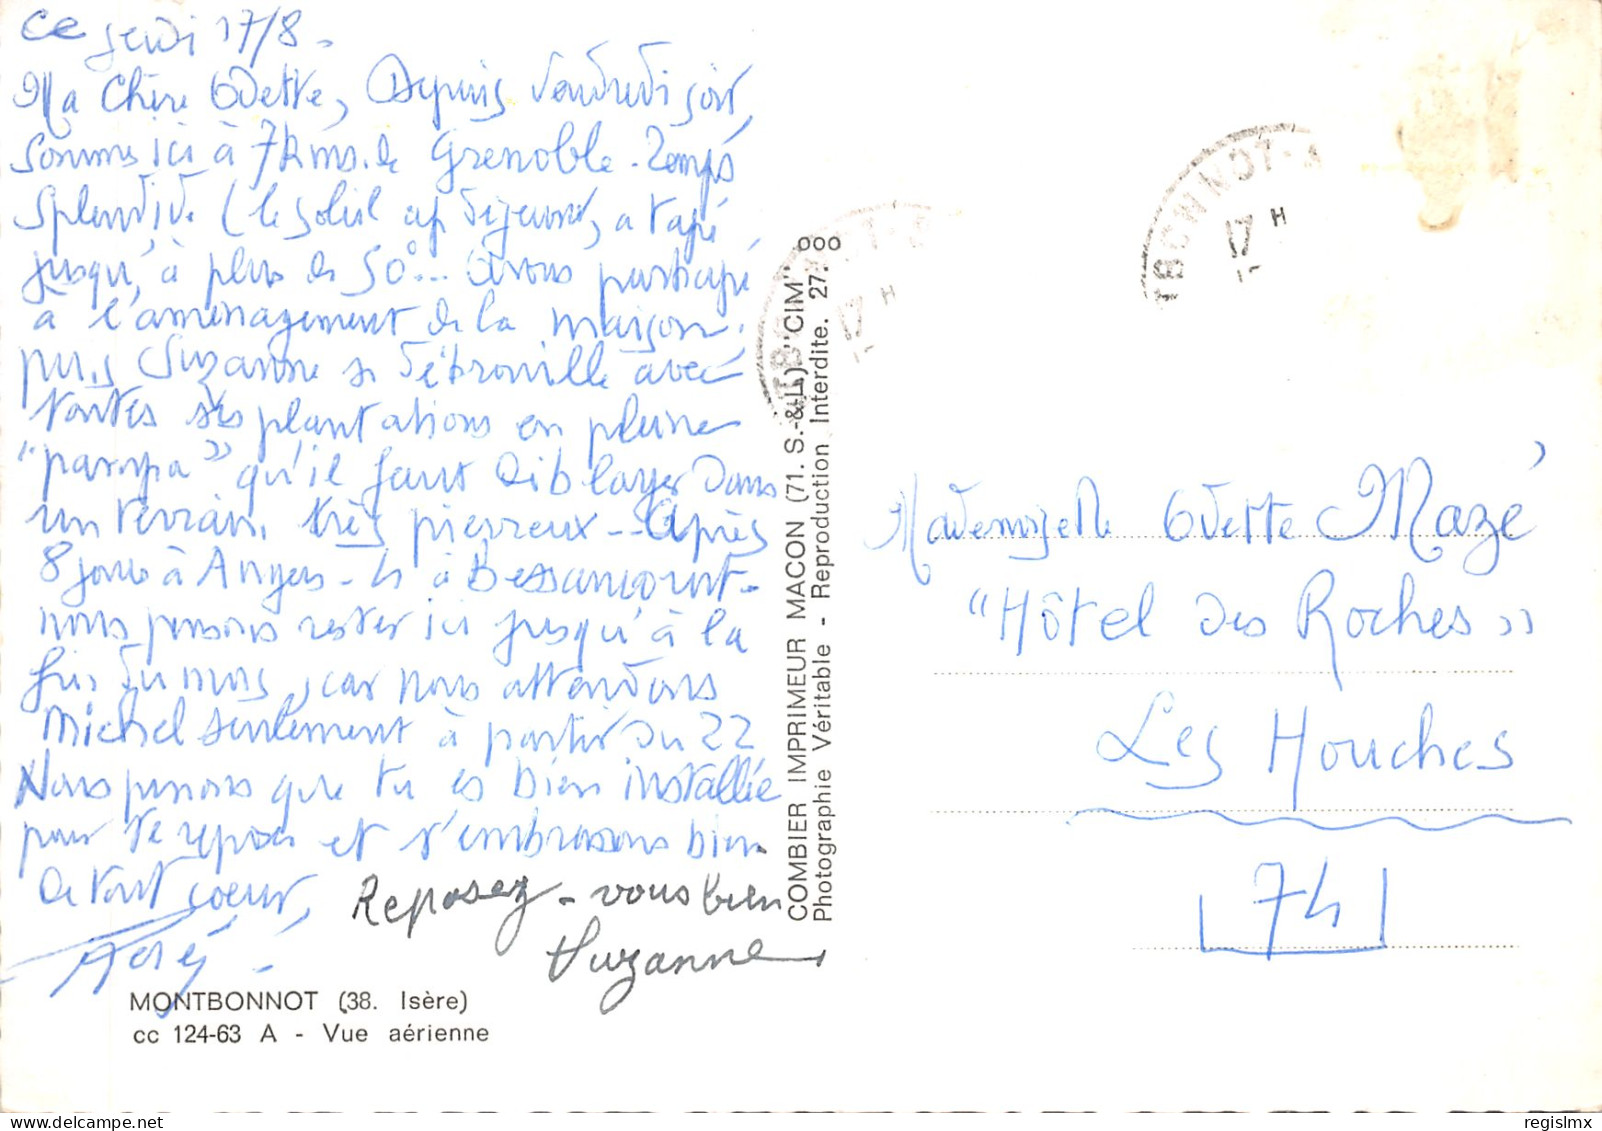 ce jeudi 17/8.
Ma Chère Odette, Depuis Vendredi soir,
sommes ici à 7 kms. de Grenoble - Temps
splendide (le soleil ap. déjeuner, a tapé
jusqu'à plus de 50°... Avons participé
à l'aménagement de la maison.
puis Suzanne se débrouille avec
toutes ses plantations en pleine
"pampa" qu'il faut déblayer dans
un terrain très pierreux -- Après
8 jours à Angers - 4 à Bessancourt -
nous pensons rester ici jusqu'à la
fin du mois, car nous attendons
Michel seulement à partir du 22
Nous pensons que tu es bien installée
pour te reposer et t'embrassons bien
de tout coeur,
Reposez-vous bien
Suzanne
MONTBONNOT (38. Isère)
cc 124-63 A - Vue aérienne
COMBIER IMPRIMEUR MACON (71. S.-&-L.) "CIM"
Photographie Véritable - Reproduction Interdite. 27.000
17 H
17 H
Mademoiselle Odette Mazé
"Hôtel des Roches"
Les Houches
74
regislmx